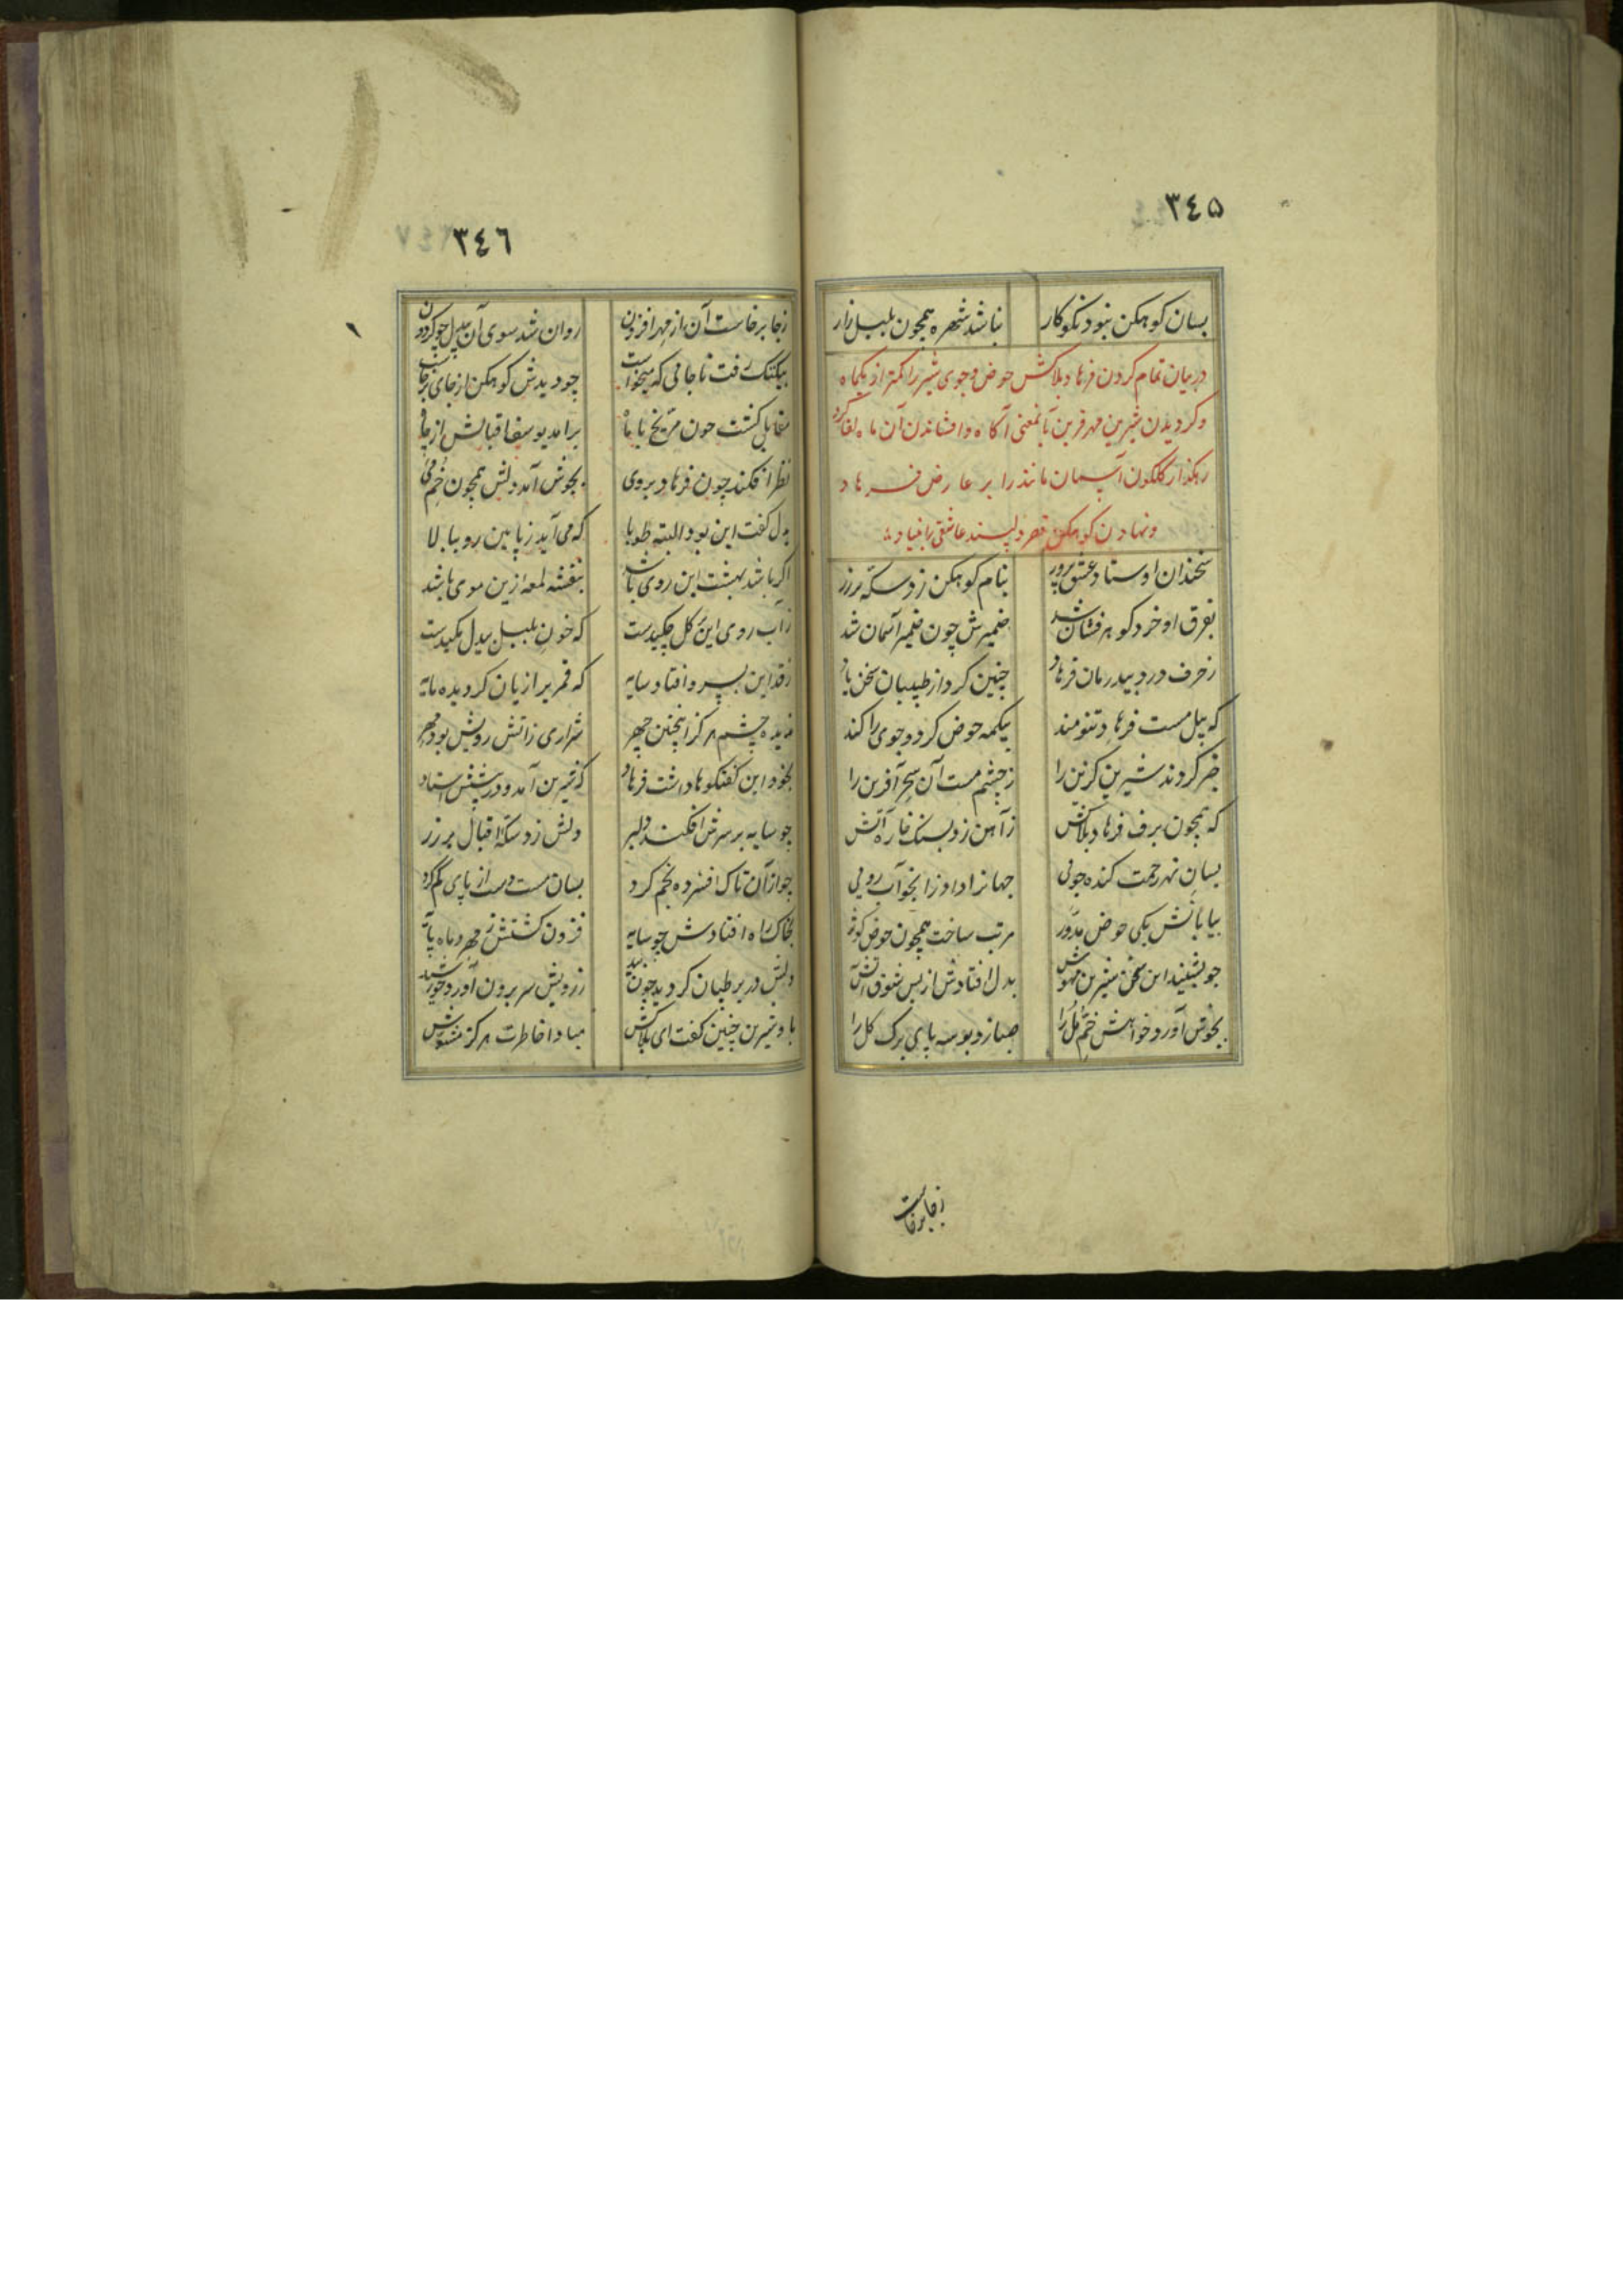 ٣٤٥
بسان کوهکن نبود نکوکار نباشد شهره همچون بلبل زار
در بیان تمام کردن فرهاد بلاکش حوض و جوی شیر را کمتر از یکماه
و کردیدن شیرین مهر قرین آنمعنی آکاه و افشاندن آن ماه لقا کرد
رهکذار کلکون آسمان مانند را بر عارض فرهاد
و نهادن کوهکن قصر دلپسند عاشقی را بنیاد
سخندان اوستاد عشق پرور بنام کوهکن زد سکه بر زر
بفرق او خرد کوهر فشان شد ضمیرش چون ضمیر آسمان شد
ز حرف درد بیدرمان فرهاد چنین کرد از طبیبان سخن یاد
که پیل مست فرهاد تنومند بیکمه حوض کرد و جوی را کند
خبر کردند شیرین کزین را ز چشم مست آن سحر آفرین را
که همچون برف فرهاد بلاکش ز آهن زد بسنک خاره آتش
بسان نهر رحمت کنده جوئی جهانرا داد از آنجو آب روئی
بیابانش یکی حوض مدور مرتب ساخت همچون حوض کوثر
چو بشنید این سخن شیرین مهوش بدل افتادش از بس شوق آتش
بجوش آورد خواهش خم مل را صبا زد بوسه پای برک کل را
زجا برخاست
٣٤٦
زجا برخاست آن از مهر افزون روان شد سوی آن بیدل چو کردون
بیکتک رفت تا جائی که میخواست چو دیدش کوهکن از جای برخاست
مقابل کشت چون مریخ با ماه برآمد یوسف اقبالش از چاه
نظر افکند چون فرهاد بر وی بجوش آمد دلش همچون خم می
بدل کفت این بود البته طوبا که می آید ز پایین رو ببالا
اکر باشد بهشت این روی باشد بنفشه لمعه ازین موی باشد
ز آب روی این کل چکیدست که خون بلبل بیدل مکیدست
ز قد این بسرو افتاد سایه که قمریرا زیان کردیده مایه
ندیده چشم هرکز اینچنین چهر شراری ز آتش رویش بود مهر
بخود این کفتکوها داشت فرهاد که شیرین آمد و در پیشش استاد
چو سایه بر سرش افکند دلبر دلش زد سکه اقبال بر زر
چو از آن تاک افشرده بخم کرد بسان مست دست از پای کم کرد
بخاک راه افتادش چو سایه فزون کشتش ز مهر و ماه پایه
دلش در بر طپان کردید چون بید ز رویش سر برون آورد خورشید
باو شیرین چنین کفت ای بلاکش مبادا خاطرت هرکز مشوش